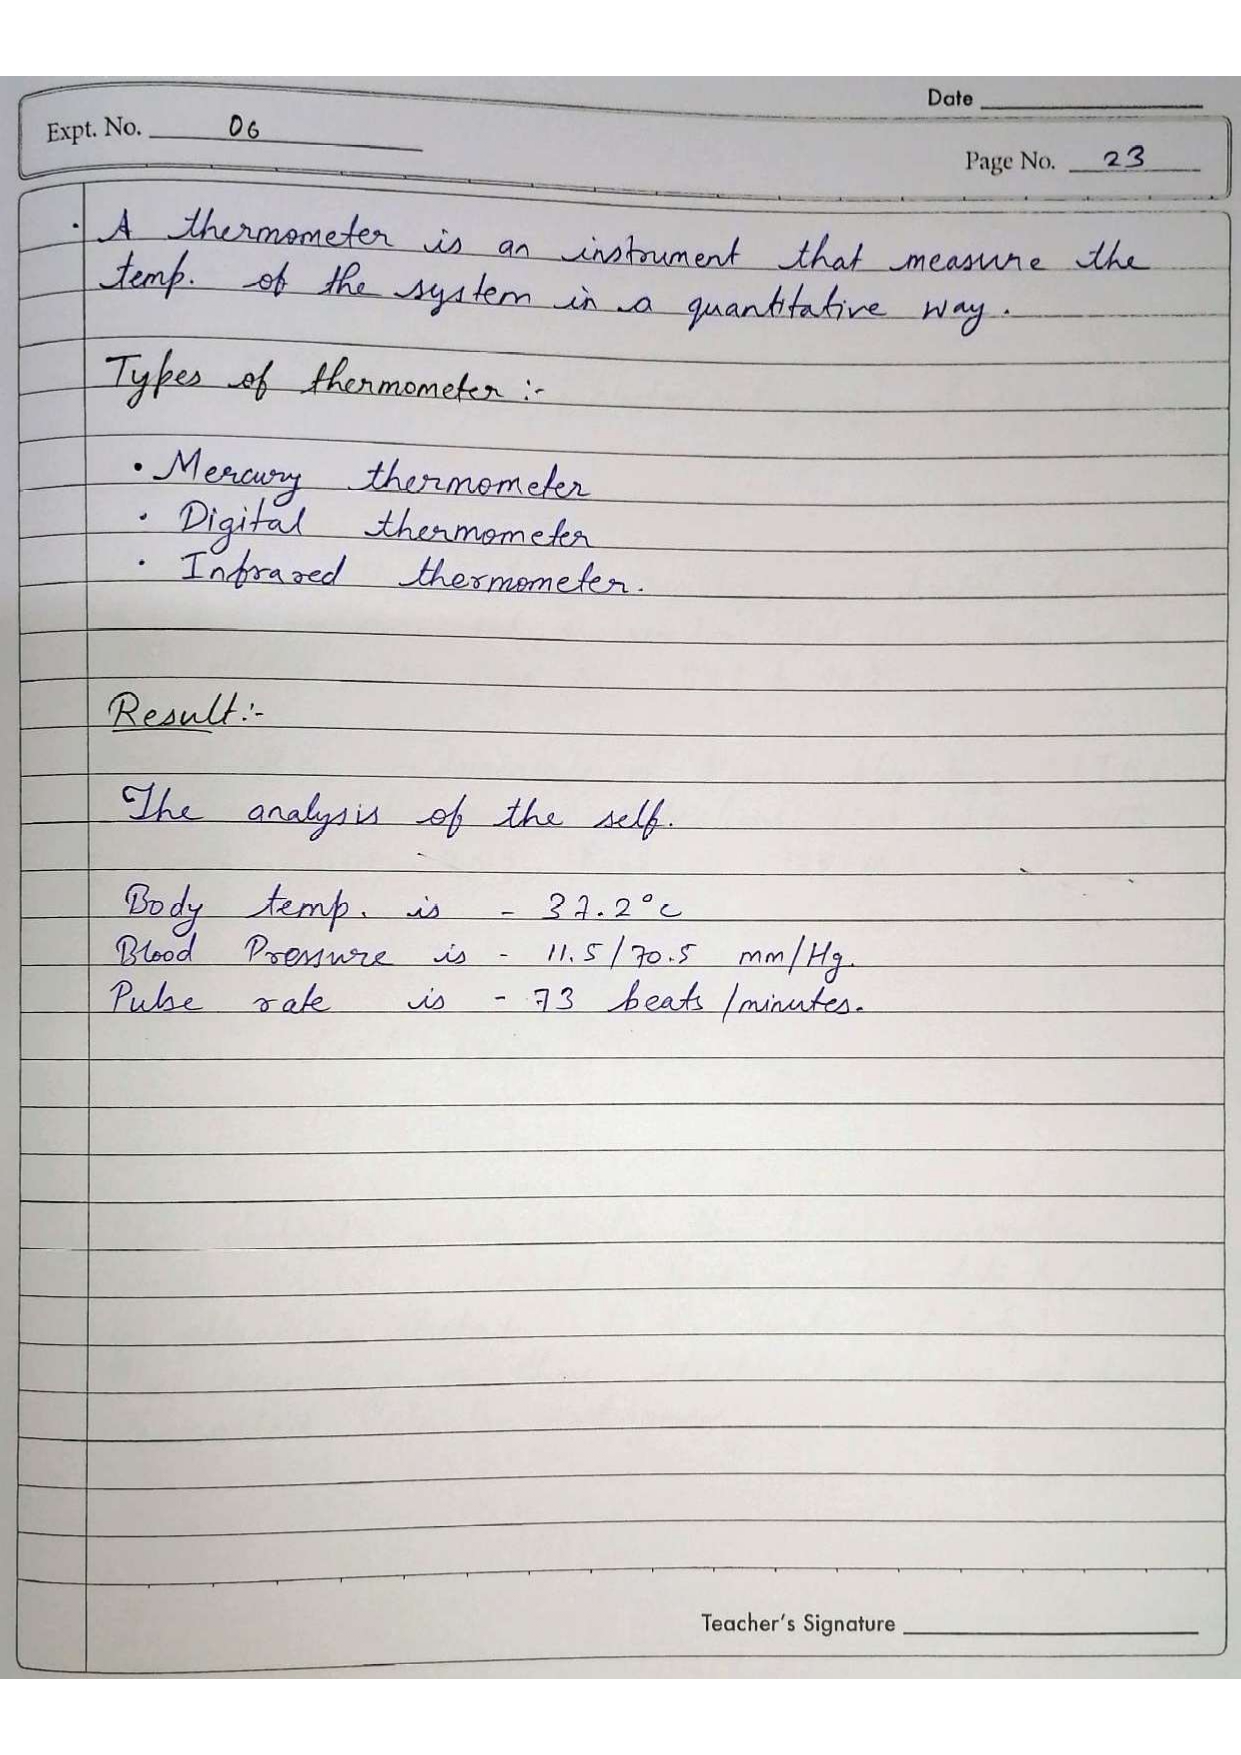 Date
Expt. No. 06
Page No. 23
. A thermometer is an instrument that measure the
temp. of the system in a quantitative way.
Types of thermometer :-
• Mercury thermometer
• Digital thermometer
• Infrared thermometer.
Result:-
The analysis of the self.
Body temp. is - 37.2°c
Blood Pressure is - 11.5/70.5 mm/Hg.
Pulse rate is - 73 beats /minutes.
Teacher's Signature